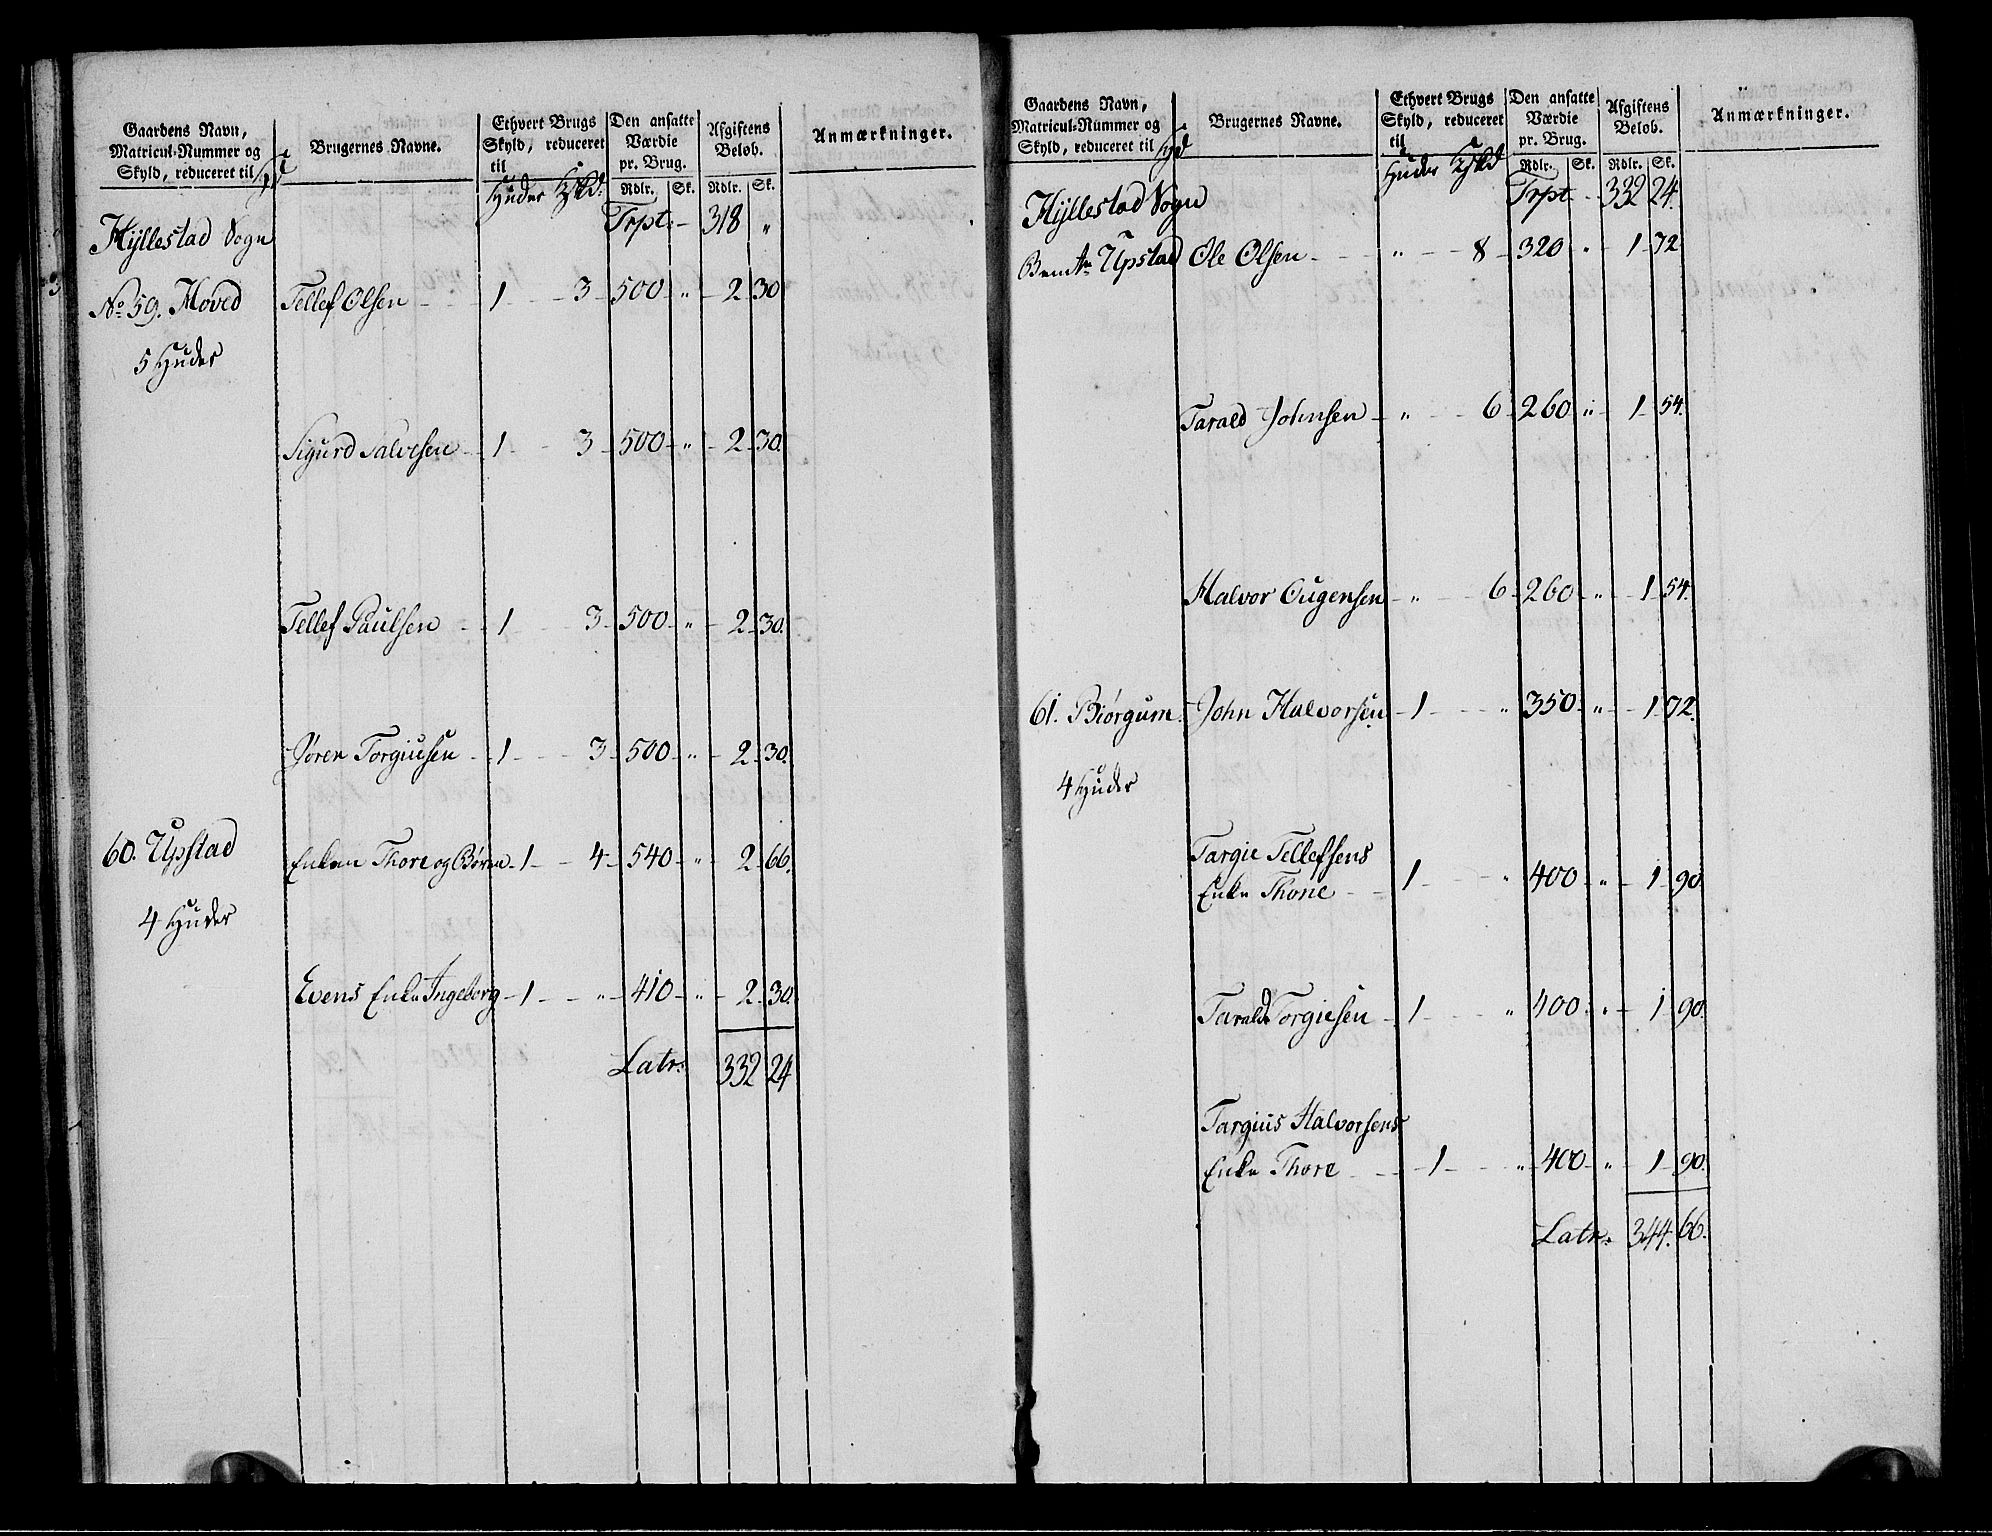 Gaardens Navn, Matricul-Nummer og Skyld, reduceret til | Brugernes Navne. | Ethvert Brugs Skyld, reduceret til Huder | Den ansatte Værdie pr. Brug. Rdlr. Sk. | Afgiftens Beløb. Rdlr. Sk. | Anmærkninger.
Hyllestad Sogn Trpt: 318 "
No 59. Moved Tellef Olsen 1 3 500 " 2 30
5 Huder
Sigurd Salvesen 1 3 500 " 2 30.
Tellef Paulsen 1 3 500 " 2 30.
Søren Torgiusen 1 3 500 " 2 30.
60. Upstad Enken Thore og Børn 1 4 540 " 2 66.
4 Huder
Evens Enke Ingeborg 1 " 410 " 2 30.
Latr: 332 24
Gaardens Navn, Matricul-Nummer og Skyld, reduceret til | Brugernes Navne. | Ethvert Brugs Skyld, reduceret til Huder | Den ansatte Værdie pr. Brug. Rdlr. Sk. | Afgiftens Beløb. Rdlr. Sk. | Anmærkninger.
Hyllestad Sogn Trpt 332 24.
Upstad Ole Olsen " 8 320 " 1 72
Tarald Johnsen " 6 260 " 1 54.
Halvor Ougensen " 6 260 " 1 54.
61. Biørgum John Halvorsen 1 " 350 " 1 72.
4 Huder
Targie Tellefsens
Enke Thone 1 " 400 " 1 90
Tarald Torgiesen 1 " 400 " 1 90.
Targius Halvorsens
Enke Thore 1 " 400 " 1 90.
Latr: 344. 66.